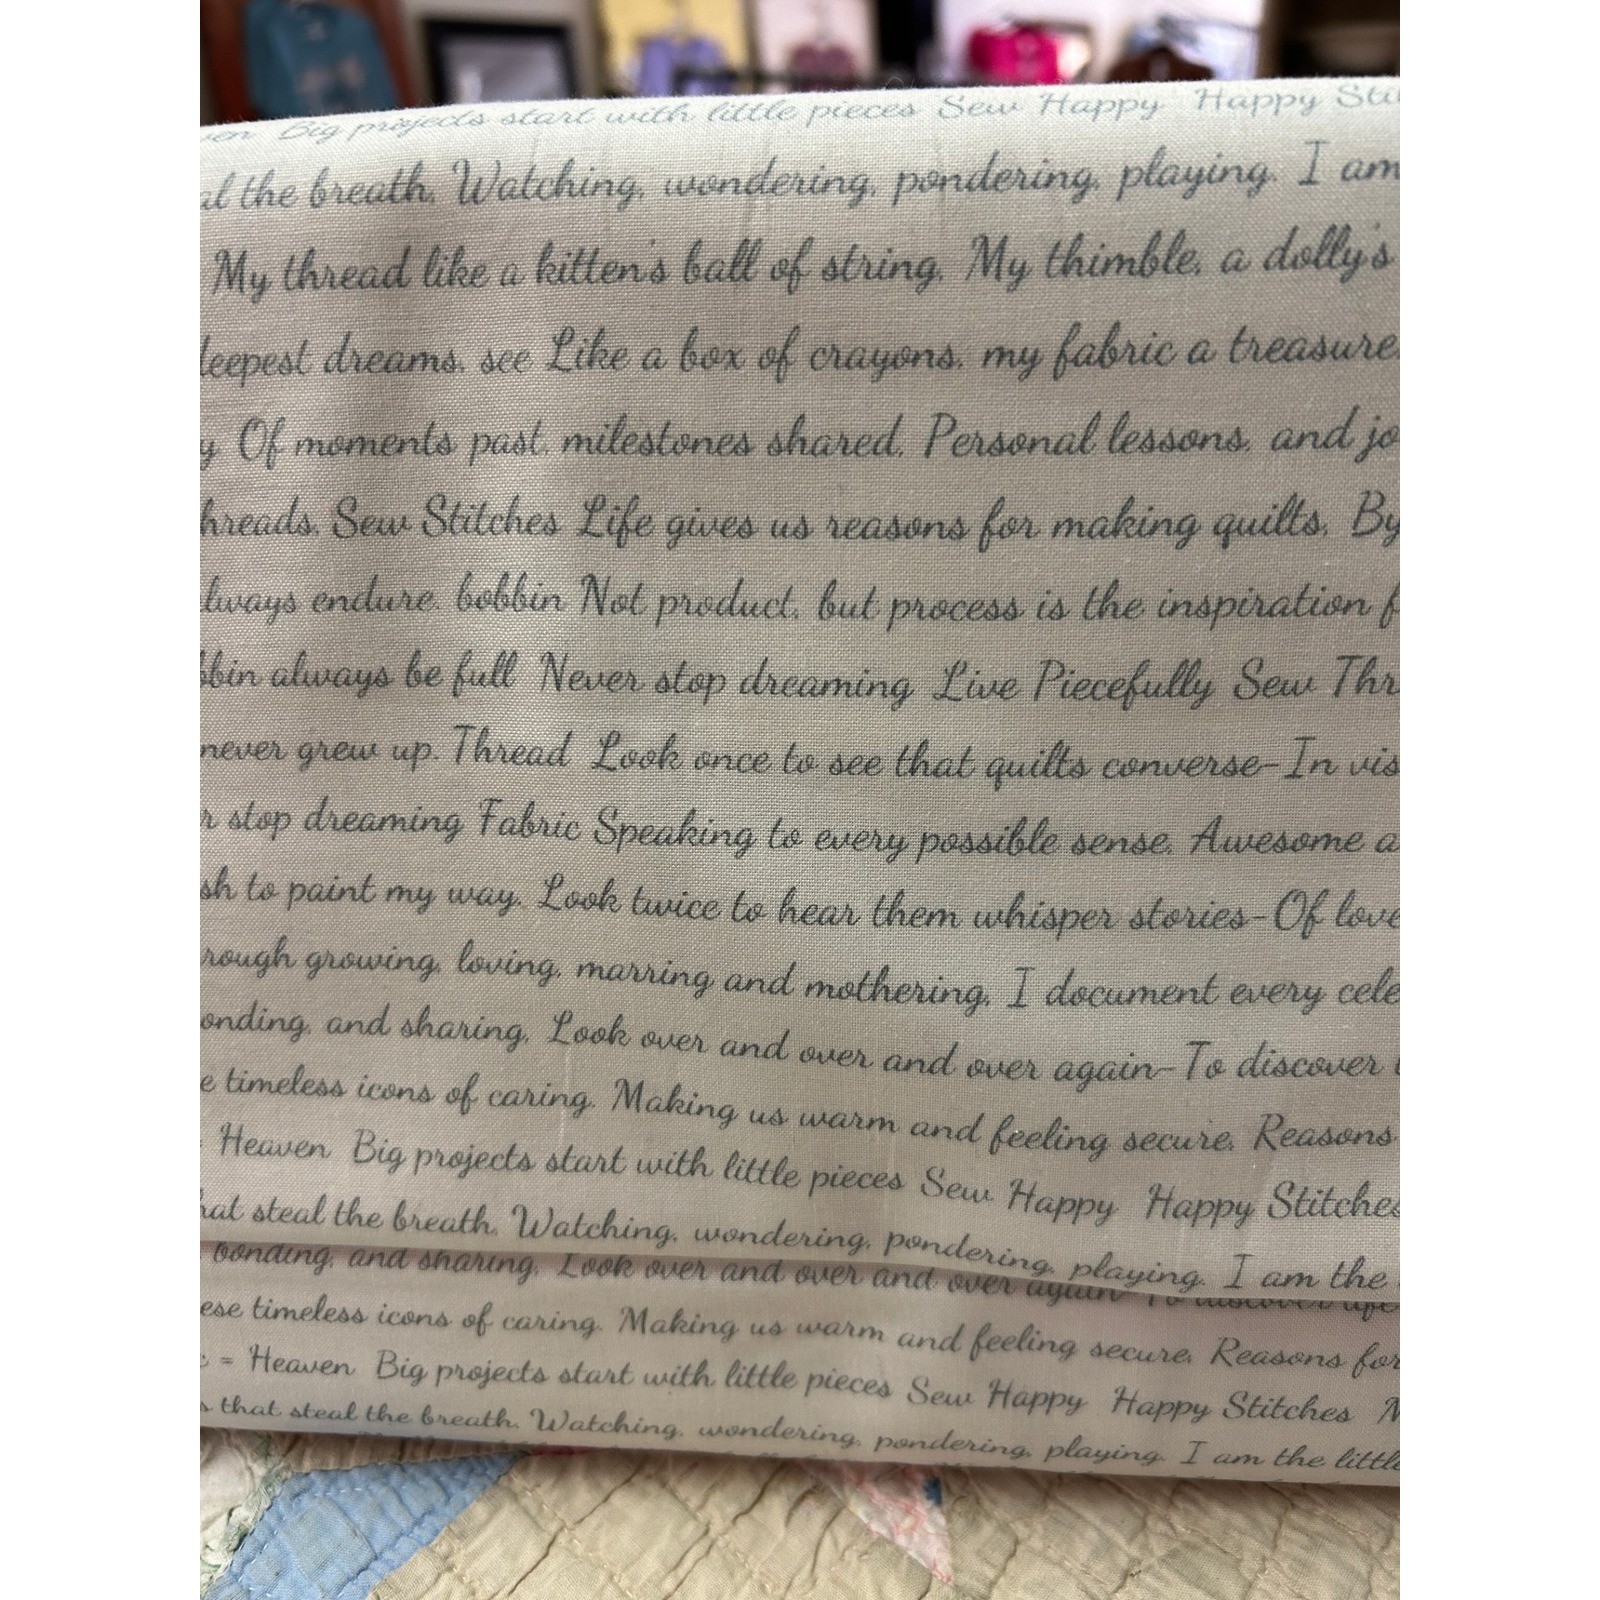 Big projects start with little pieces Sew Happy Happy
the breath. Watching, wondering, pondering, playing. I am
My thread like a kitten's ball of string, My thimble, a dolly's
deepest dreams. see Like a box of crayons, my fabric a treasure
Of moments past, milestones shared, Personal lessons, and
threads. Sew Stitches Life gives us reasons for making quilts, By
always endure. bobbin Not product, but process is the inspiration
always be full Never stop dreaming Live Piecefully Sew
never grew up. Thread Look once to see that quilts converse-In
stop dreaming Fabric Speaking to every possible sense. Awesome
to paint my way. Look twice to hear them whisper stories-Of love
growing, loving, marring and mothering, I document every
and sharing, Look over and over and over again-To discover
timeless icons of caring. Making us warm and feeling secure. Reasons
Heaven Big projects start with little pieces Sew Happy Happy Stitches
steal the breath. Watching, wondering, pondering, playing. I am the
bonding, and sharing, Look over and over and over again-To discover
timeless icons of caring. Making us warm and feeling secure. Reasons for
= Heaven Big projects start with little pieces Sew Happy Happy Stitches
that steal the breath. Watching, wondering, pondering, playing. I am the little